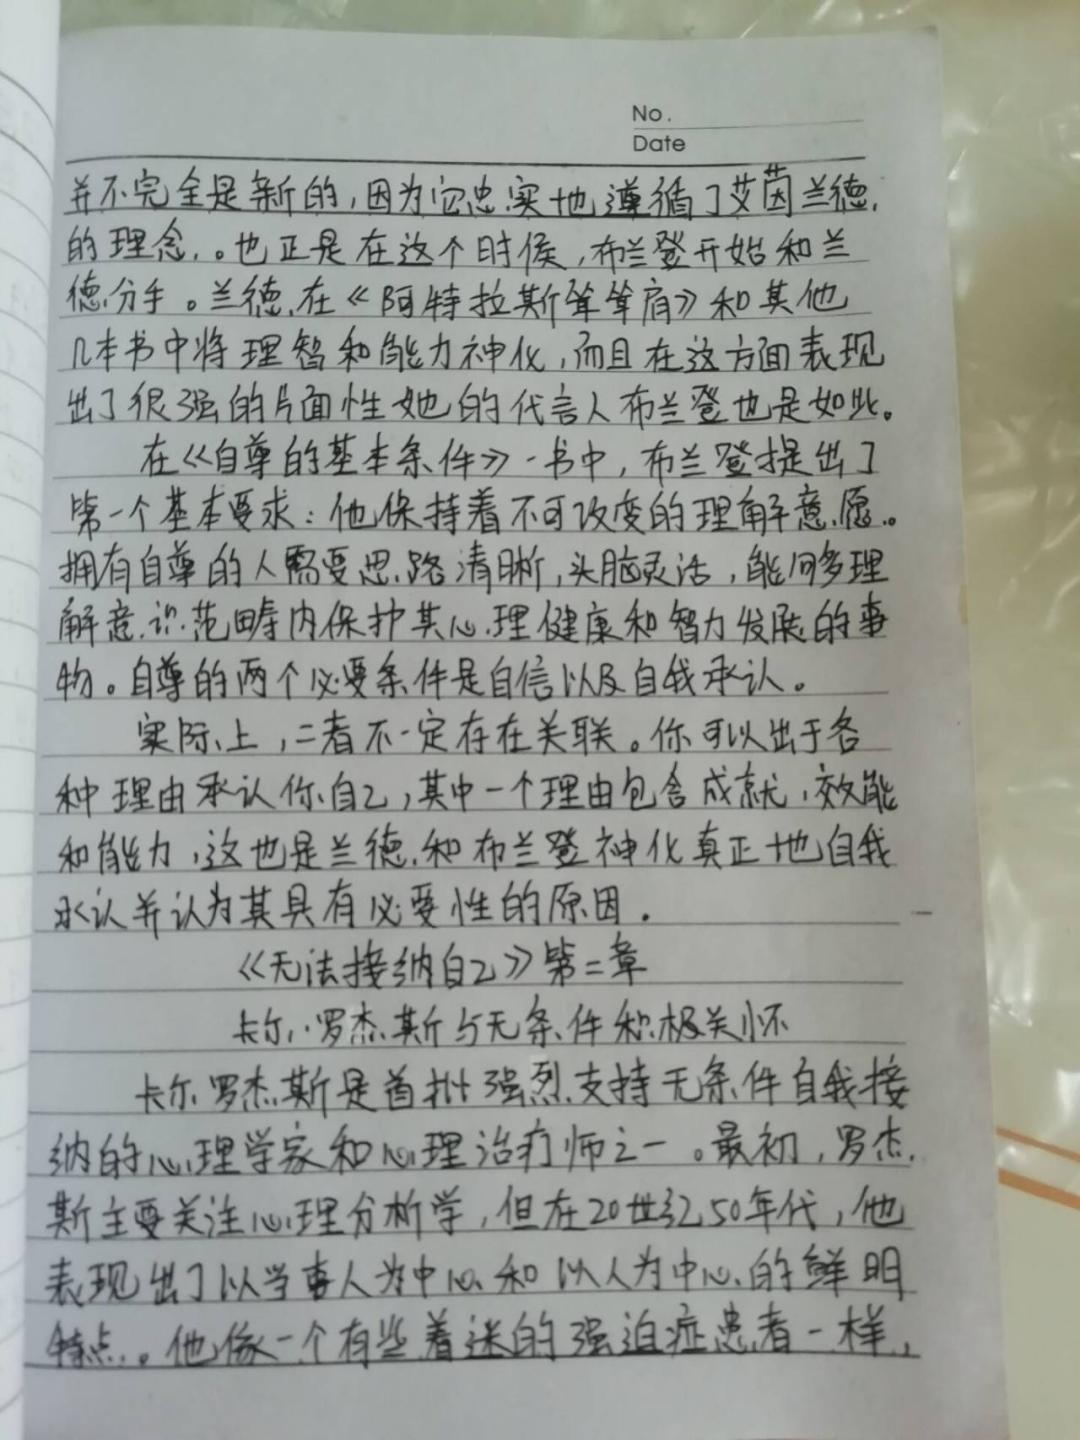 No.
Date
并不完全是新的，因为它忠实地遵循了艾茵兰德
的理念。也正是在这个时候，布兰登开始和兰
德分手。兰德在《阿特拉斯耸耸肩》和其他
几本书中将理智和能力神化，而且在这方面表现
出了很强的片面性她的代言人布兰登也是如此。
在《自尊的基本条件》一书中，布兰登提出了
第一个基本要求：他保持着不可改变的理解意愿。
拥有自尊的人需要思路清晰，头脑灵活，能够多理
解意识范畴内保护其心理健康和智力发展的事
物。自尊的两个必要条件是自信以及自我承认。
实际上，二者不一定存在关联。你可以出于各
种理由承认你自己，其中一个理由包含成就，效能
和能力，这也是兰德和布兰登神化真正地自我
承认并认为其具有必要性的原因.
《无法接纳自己》第二章
卡尔·罗杰斯与无条件积极关怀
卡尔罗杰斯是首批强烈支持无条件自我接
纳的心理学家和心理治疗师之一。最初，罗杰
斯主要关注心理分析学，但在20世纪50年代，他
表现出了以当事人为中心和以人为中心的鲜明
特点。他像一个有些着迷的强迫症患者一样，